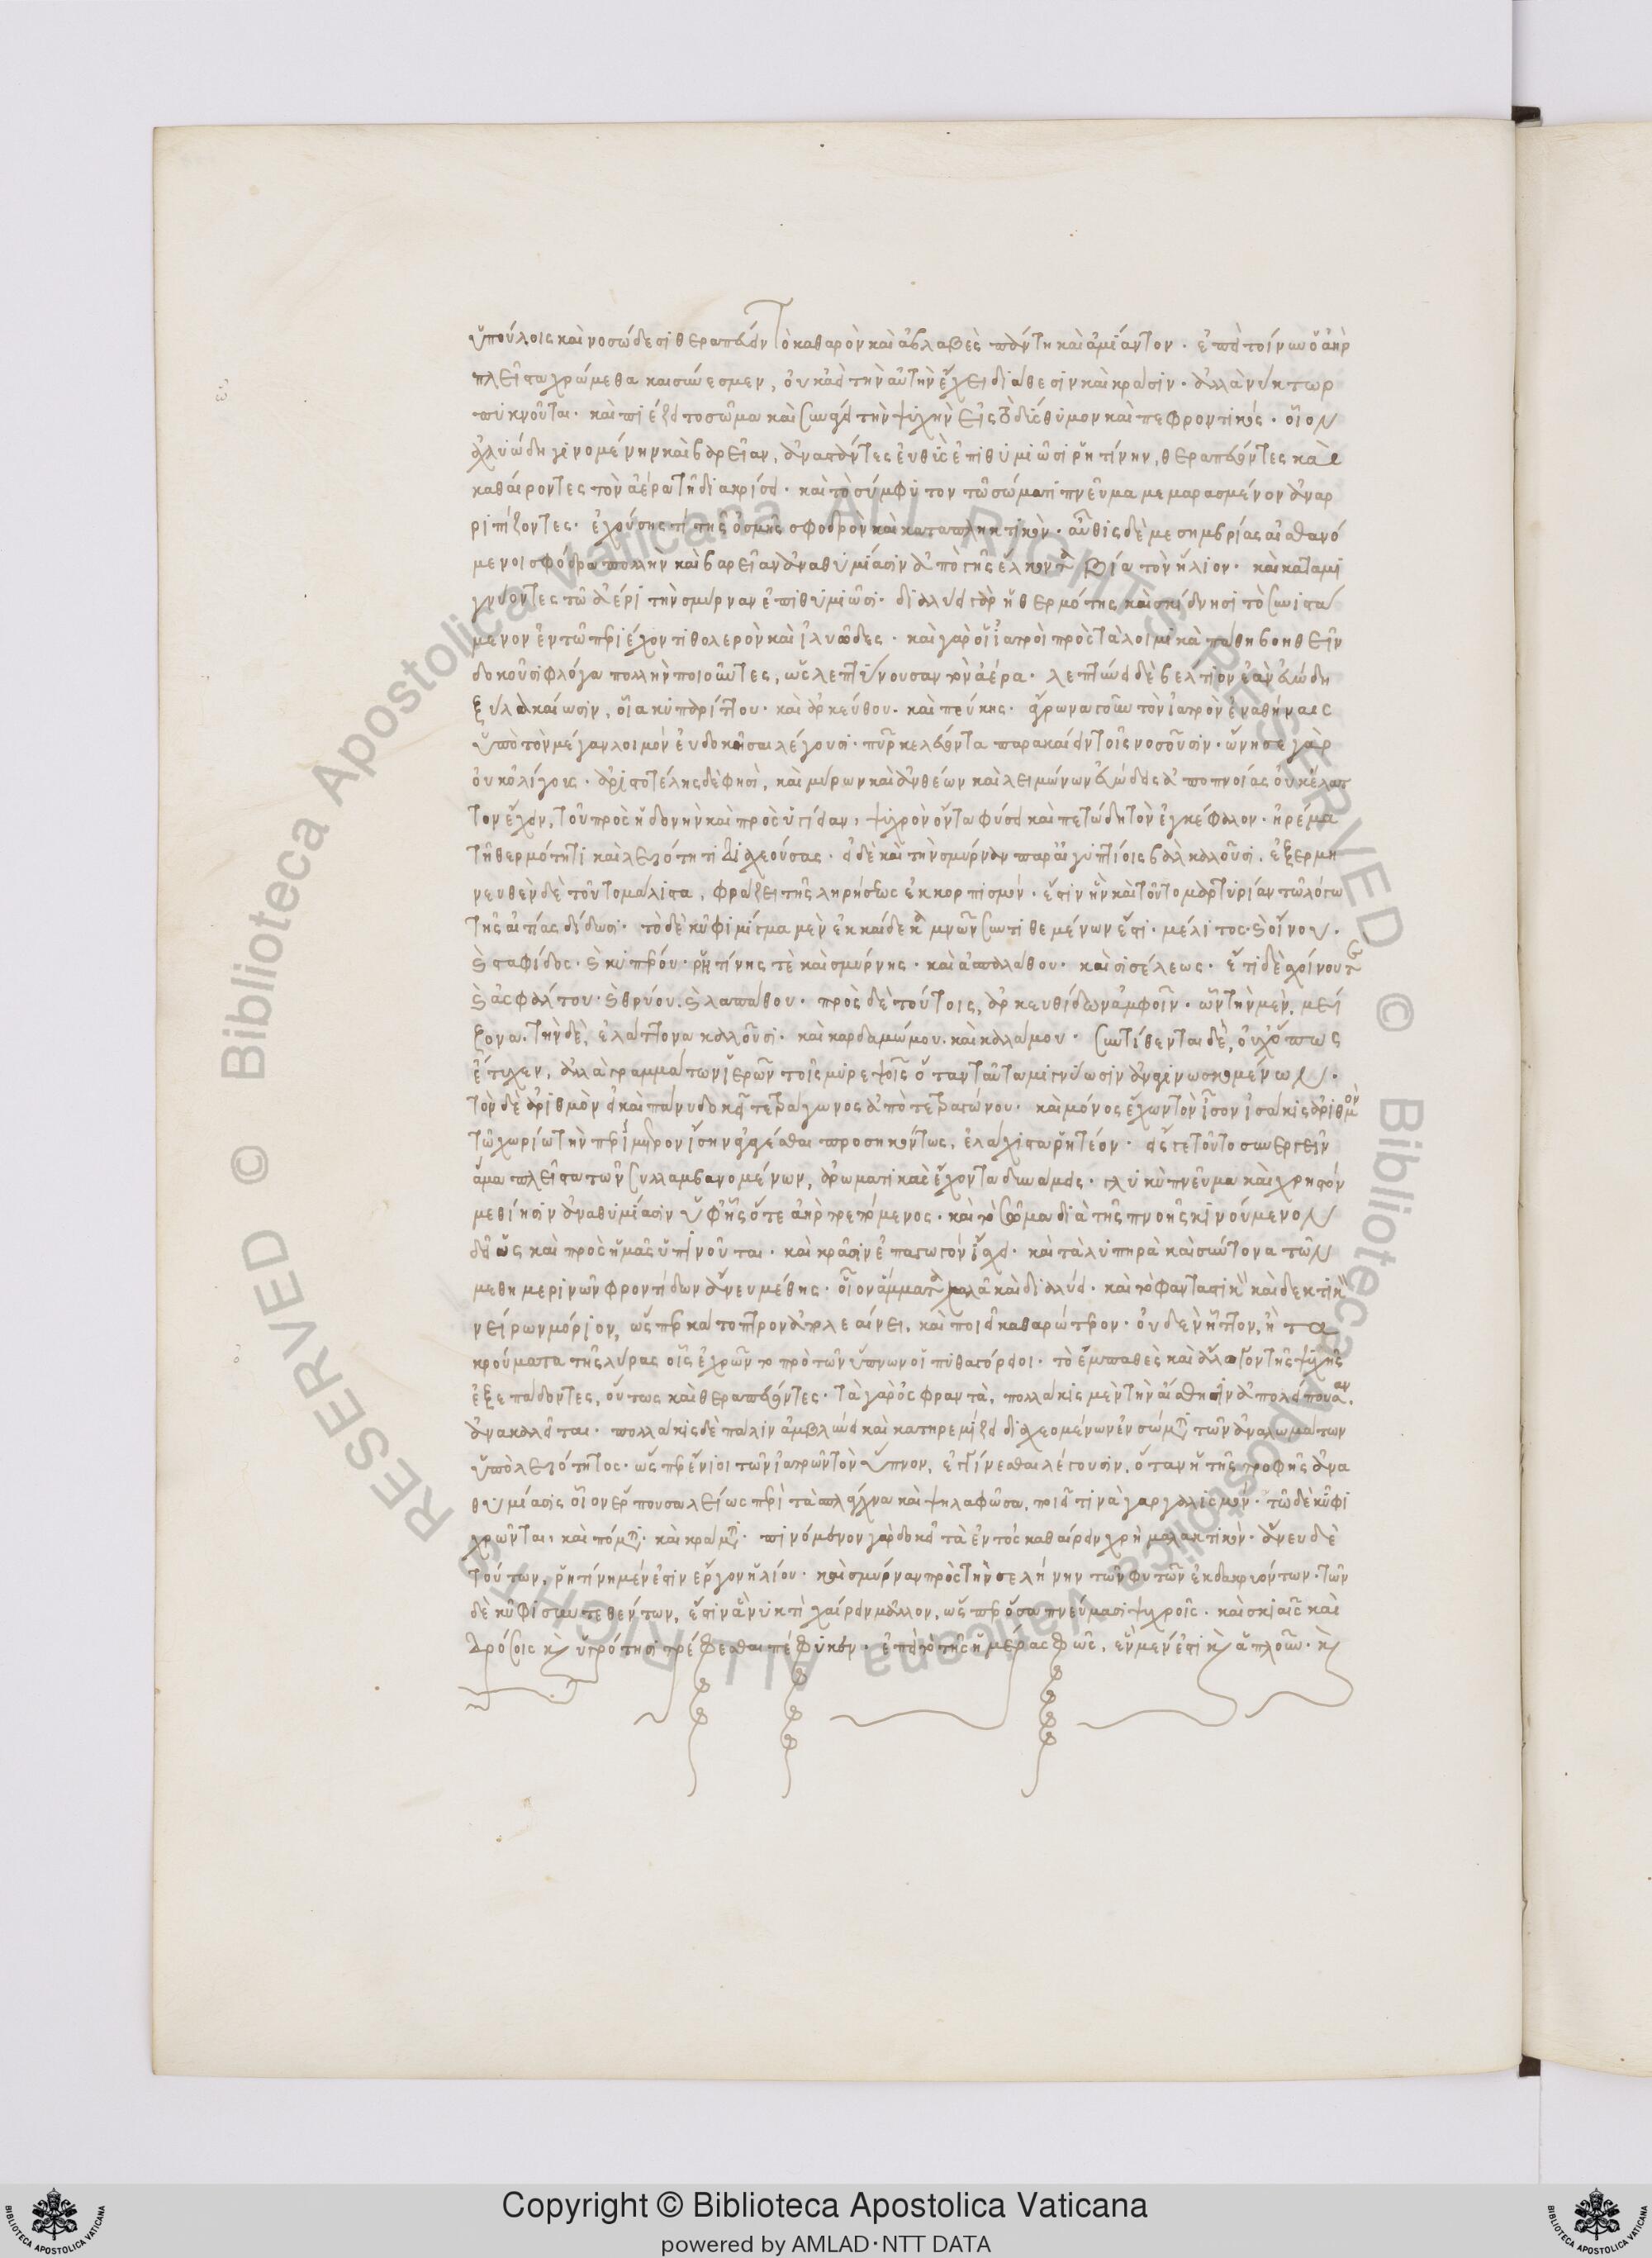 ὑπούλοις καὶ νοσώδεσι θεραπεύειν τὸ καθαρὸν καὶ ἀβλαβὲς πάντη καὶ ἀμίαντον. ἐπεὶ τοίνυν ὁ ἀὴρ
πλεῖστα χρώμεθα καὶ σύνεσμεν, οὐκ ἀεὶ τὴν αὐτὴν ἔχει διάθεσιν καὶ κρᾶσιν. ἀλλὰ νύκτωρ
πυκνοῦται. καὶ πιέζει τὸ σῶμα καὶ συνάγει τὴν ψυχὴν εἰς τὸ δύσθυμον καὶ πεφροντικός. οἷον
ἀχλυώδη γινομένην καὶ βαρεῖαν, ἀναστάντες εὐθὺς ἐπιθυμιῶσι ῥητίνην, θεραπεύοντες καὶ
καθαίροντες τὸν ἀέρα τῇ διακρίσει. καὶ τὸ σύμφυτον τῷ σώματι πνεῦμα μεμαρασμένον ἀναρ
ριπίζοντες. ἐχούσης τι τῆς ὀσμῆς σφοδρὸν καὶ καταπληκτικὸν. αὖθις δὲ μεσημβρίας αἰσθανό
μενοι σφόδρα πολλὴν καὶ βαρεῖαν ἀναθυμίασιν ἀπὸ τῆς ἕλκοντα βίᾳ τὸν ἥλιον. καὶ καταμι
γνύοντες τῷ ἀέρι τὴν σμύρναν ἐπιθυμιῶσι. διαλύει γὰρ ἡ θερμότης καὶ σκίδνησι τὸ συνιστά
μενον ἐν τῷ περιέχοντι θολερὸν καὶ ἰλυῶδες. καὶ γὰρ οἱ ἰατροὶ πρὸς τὰ λοιμικὰ πάθη βοηθεῖν
δοκοῦσι φλόγα πολλὴν ποιοῦντες, ὡς λεπτύνουσαν τὸν ἀέρα. λεπτύνει δὲ βέλτιον ἐὰν εὐώδη
ξύλα καίωσιν, οἷα κυπαρίττου. καὶ ἀρκεύθου. καὶ πεύκης. ἄκρωνα γοῦν τὸν ἰατρὸν ἐν ἀθήναις
ὑπὸ τὸν μέγαν λοιμὸν εὐδοκῆσαι λέγουσι. πῦρ κελεύοντα παρακαίειν τοῖς νοσοῦσιν. ὤνησε γὰρ
οὐκ ὀλίγους. ἀριστοτέλης δὲ φησὶ, καὶ μύρων καὶ ἀνθέων καὶ λειμώνων εὐώδεις ἀποπνοίας οὐκ ἔλατ
τον ἔχειν, τοῦ πρὸς ἡδονὴν καὶ πρὸς ὑγίειαν, ψυχρὸν ὄντα φύσει καὶ παγετώδη τὸν ἐγκέφαλον. ἠρέμα
τῇ θερμότητι καὶ λειότητι διαχεούσας. εἰ δὲ καὶ τὴν σμύρναν παρ᾽ αἰγυπτίοις βαλ καλοῦσι. ἐξερμη
νευθὲν δὲ τοῦτο μάλιστα, φράζει τῆς ληρήσεως ἐκκορπισμόν. ἔστιν ἣν καὶ τοῦτο μαρτυρίαν τῷ λόγῳ
τῆς αἰτίας δίδωσι. τὸ δὲ κῦφι μίγμα μὲν ἑκκαίδεκα μνῶν συντιθεμένων ἐστί. μέλιτος. καὶ οἴνου.
καὶ σταφίδος. καὶ κυπέρου. ῥητίνης τὲ καὶ σμύρνης. καὶ ἀσπαλάθου. καὶ σισέλεως. ἔτι δὲ σχίνου τε
καὶ ἀσφάλτου. καὶ θρύου. καὶ λαπάθου. πρὸς δὲ τούτοις, ἀρκευθίδων ἀμφοῖν. ὧν τὴν μὲν, μεί
ζονα. τὴν δὲ, ἐλάττονα καλοῦσι. καὶ καρδαμώμου. καὶ καλάμου. συντίθενται δὲ, οὐχ ὅπως
ἔτυχεν, ἀλλὰ γραμμάτων ἱερῶν τοῖς μυρεψοῖς ὅταν ταῦτα μιγνύωσιν ἀναγινωσκομένων.
τὸν δὲ ἀριθμὸν εἰ καὶ πάνυ δοκεῖ τετράγωνος ἀπὸ τετραγώνου. καὶ μόνος ἔχων τὸν ἴσον ἰσάκις ἀριθμὸν
τῷ χωρίῳ τὴν περίμετρον ἴσην ἀγαγέσθαι προσηκόντως, ἐλάχιστα ῥητέον. εἴς γε τοῦτο συνεργεῖν
ἀλλὰ πλεῖστα τῶν συλλαμβανομένων, ἀρωματικὰς ἔχοντα δυνάμεις. γλυκὺ πνεῦμα καὶ χρηστὸν
μεθίησιν ἀναθυμίασιν ὑφ᾽ ἧς ὅτε ἀὴρ τρεπόμενος. καὶ τὸ σῶμα διὰ τῆς πνοῆς κινούμενον
καὶ πρὸς ἡμᾶς ὑπνοῦται. καὶ κρᾶσιν ἐπαγωγὸν ἴσχει. καὶ τὰ λυπηρὰ καὶ σύντονα τῶν
μεθημερινῶν φροντίδων ἄνευ μέθης. οἷον ἅμματα χαλᾷ καὶ διαλύει. καὶ τὸ φανταστικὸν καὶ δεκτικὸν
νείρων μόριον, ὥσπερ κάτοπτρον ἀπολεαίνει. καὶ ποιεῖ καθαρώτερον. οὐδὲν ἧττον, ἢ τὰ
κρούματα τῆς λύρας οἷς ἐχρῶντο πρὸ τῶν ὕπνων οἱ πυθαγόρειοι. τὸ ἐμπαθὲς καὶ ἄλογον τῆς ψυχῆς
ἐξεπάδοντες, οὕτως καὶ θεραπεύοντες. τὰ γὰρ ὀσφραντὰ, πολλάκις μὲν τὴν αἴσθησιν ἀπολείπουσαν.
ἀνακαλεῖται. πολλάκις δὲ πάλιν ἀμβλύνει καὶ κατηρεμίζει διαχεομένων ἐν σώματι τῶν ἀναλωμάτων
ὑπὸ λειότητος. ὥσπερ ἔνιοι τῶν ἰατρῶν τὸν ὕπνον, ἐγγίνεσθαι λέγουσιν. ὅταν ἡ τῆς τροφῆς ἀνα
θυμίασις οἷον ἕρπουσα λείως περὶ τὰ σπλάγχνα καὶ ψηλαφῶσα, ποιεῖ τινὰ γαργαλισμόν. τῷ δὲ κῦφι
χρῶνται, καὶ πόματι. καὶ κράματι. πινόμενον γὰρ δοκεῖ τὰ ἐντὸς καθαίρειν χρὴ μαλακτικὸν. ἄνευ δὲ
τούτων, ῥητίνη μέν ἐστιν ἔργον ἡλίου. καὶ σμύρναν πρὸς τὴν σελήνην τῶν φυτῶν ἐκδακρυόντων. τῶν
δὲ κῦφι συντεθέντων, ἔστιν ἃ νυκτὶ χαίρειν μᾶλλον, ὥσπερ ὅσα πνεύμασι ψυχροῖς. καὶ σκιαῖς καὶ
δρόσοις καὶ ὑγρότησι τρέφεσθαι πέφυκεν. ἐπεὶ τὸ τῆς ἡμέρας φῶς, ἓν μέν ἐστι καὶ ἁπλοῦν. καὶ